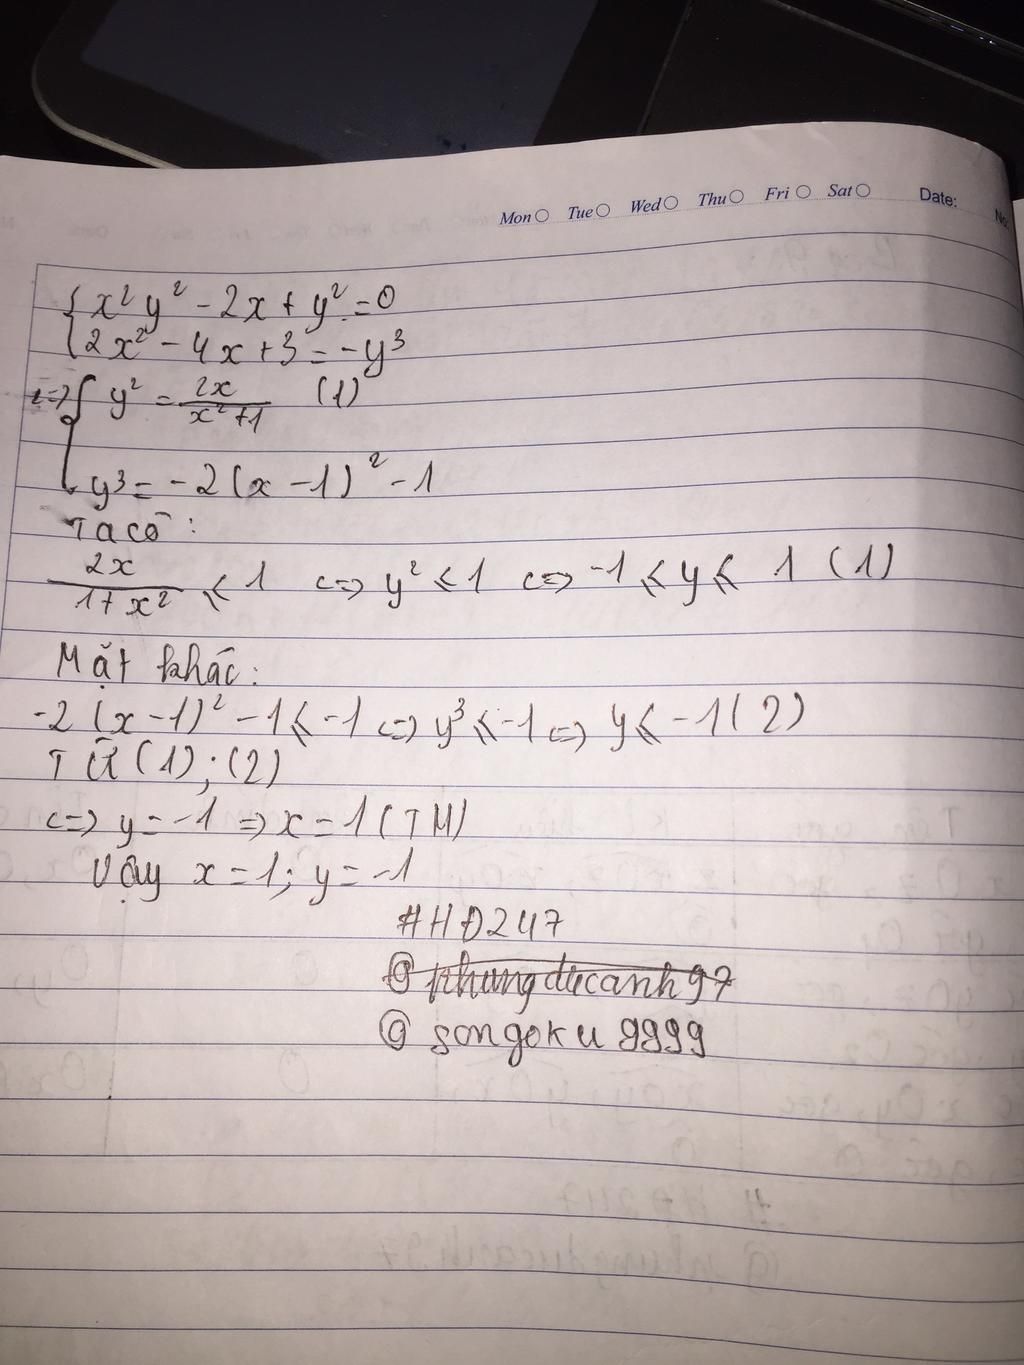 Mon Tue Wed Thu Fri Sat Date:
No:
{ x²y² - 2x + y² = 0
2x² - 4x + 3 = -y³
<=> { y² = 2x/(x²+1) (1)
y³ = -2(x-1)² - 1
Ta có:
2x/(1+x²) ⩽ 1 <=> y² ⩽ 1 <=> -1 ⩽ y ⩽ 1 (1)
Mặt khác:
-2(x-1)² - 1 ⩽ -1 <=> y³ ⩽ -1 <=> y ⩽ -1 (2)
Từ (1); (2)
<=> y = -1 => x = 1 (TM)
Vậy x = 1; y = -1
#HĐ247
@phungducanh97
@songoku9999